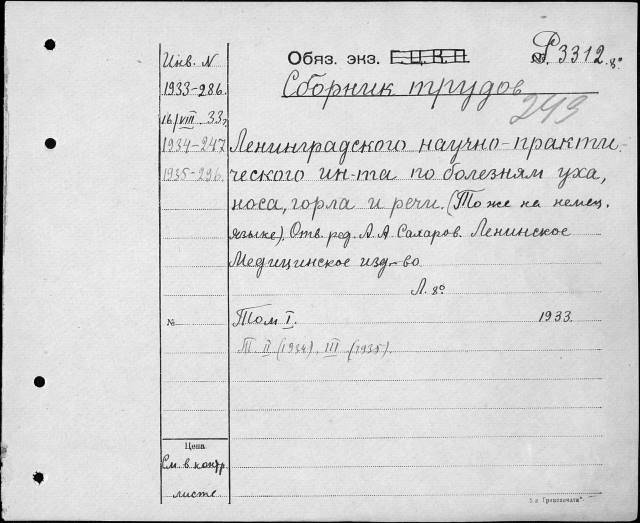 Инв. N
1933-286.
16/VIII. 33
1934-247
1935-296.
Обяз. экз. Г.Ц.К.П
Р 3312. 8°
Сборник трудов
243
Ленинградского научно-практи-
ческого ин-та по болезням уха,
носа, горла и речи. (То же на немец.
языке). Отв. ред. Л. А. Сахаров. Ленинское
Медицинское изд-во
Л. 8°
№
Том I. 1933.
Т. II (1934). III (1935).
Цена
См. в контр.
листе